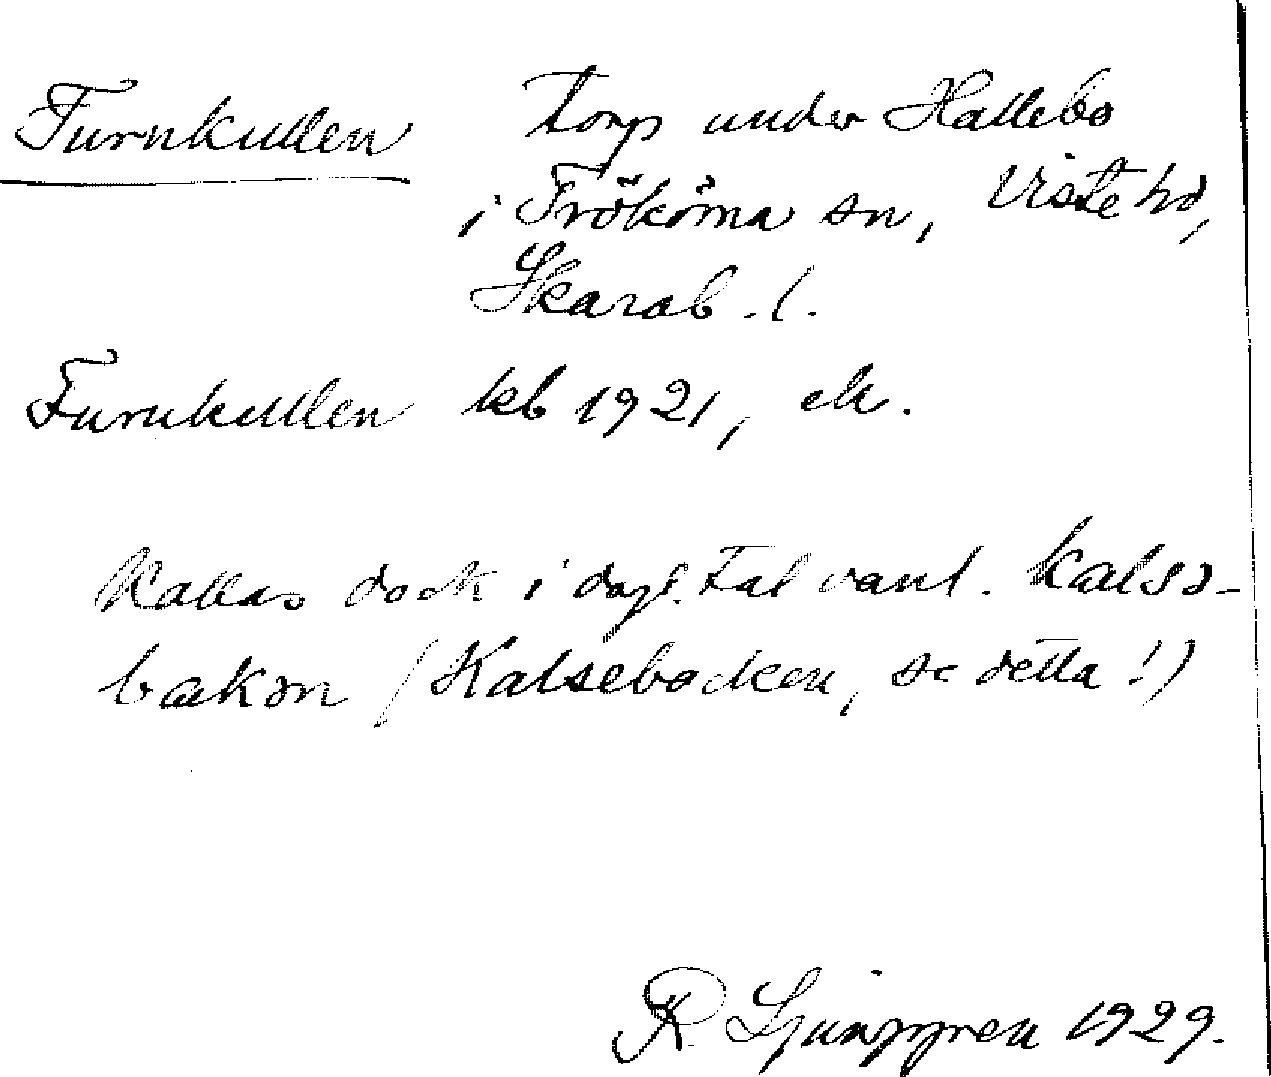 Furukullen torp under Hallebo
i Frököma sn, Viste hd,
Skarab. l.
Furukullen kb 1921, ek.
Kallas dock i dagl. tal vanl. kalsə-
bakən (Kalsebacken, se detta!)
R. Ljunggren 1929.